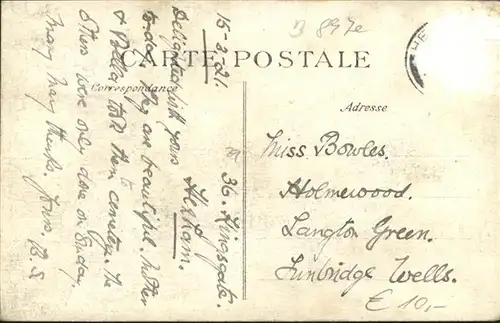 B 897e
HE
CARTE POSTALE
Correspondance
Adresse
36. Kingsgate.
Hexham.
15-3-21.
Delighted with yours
to-day. They are beautiful. Mother
& Bella took them to cemetery. The
others were only done on Sunday.
Many many thanks. Yours. B.S.
Miss. Bowles.
Holmewood.
Langton Green.
Tunbridge Wells.
€ 10,-